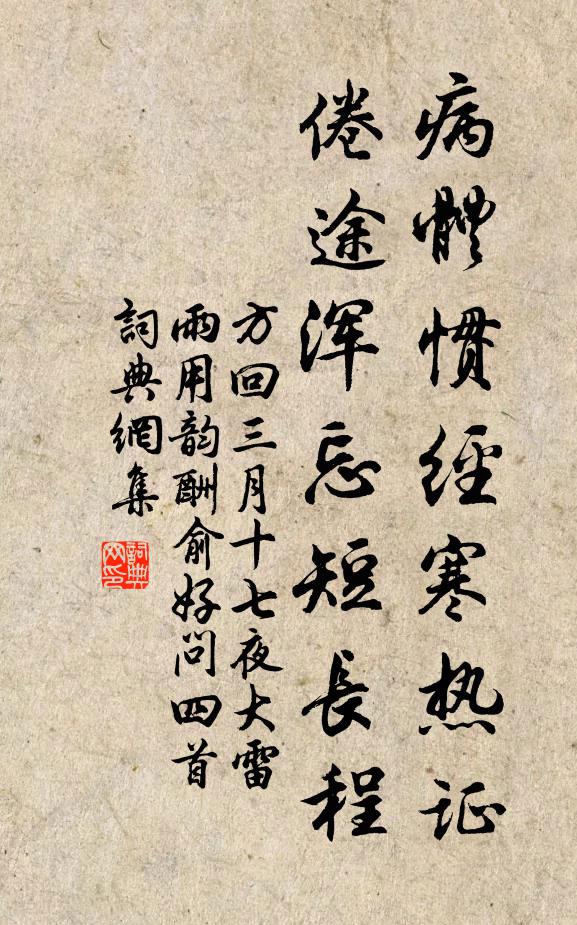 病體慣經寒热证
倦途浑忘短長程
方回三月十七夜大雷
雨用韵酬俞好问四首
詞典網集
詞典网印